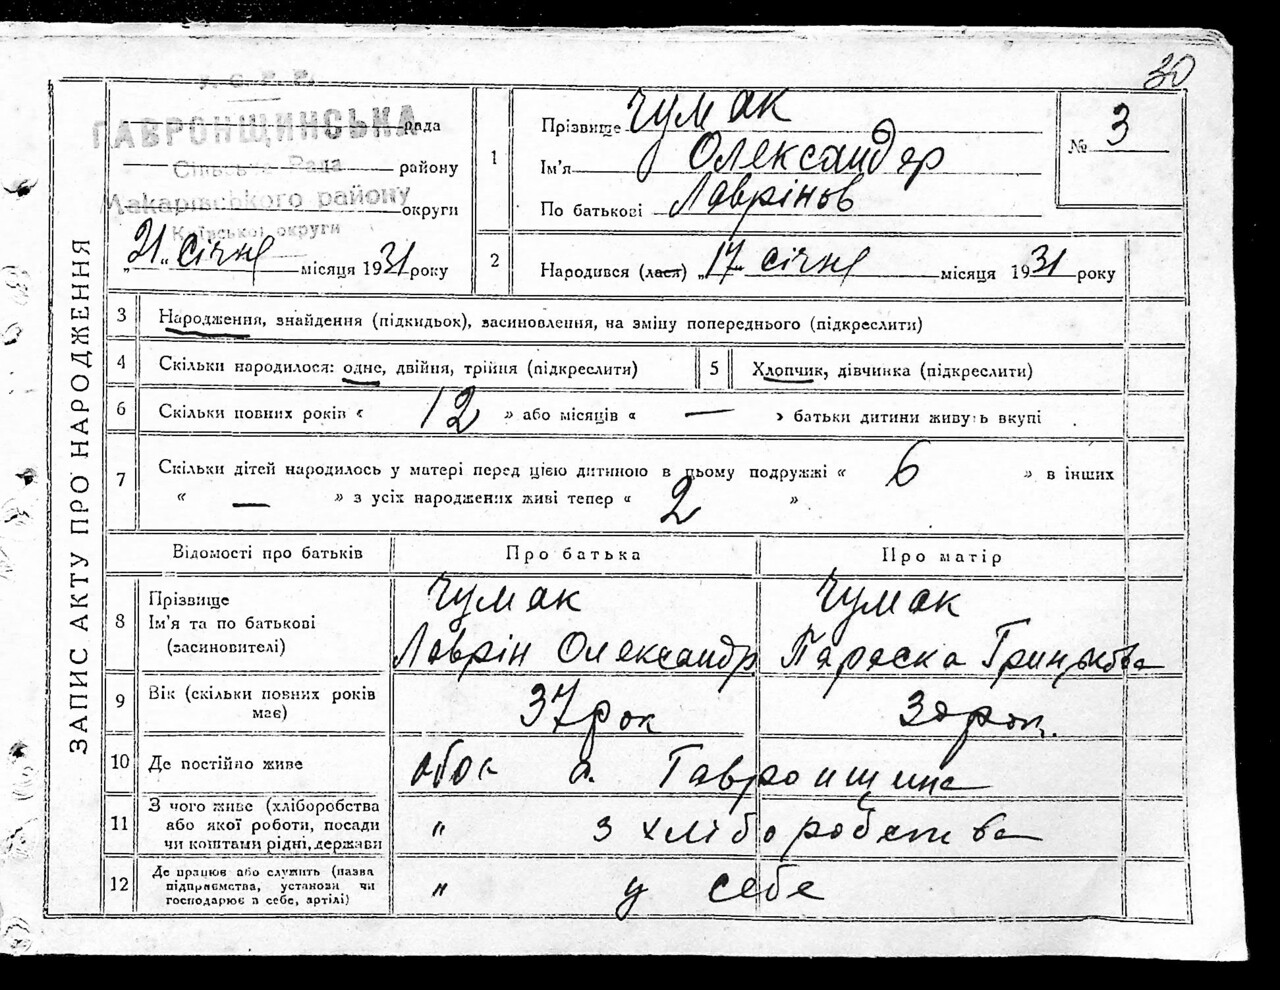 30
У. С. Р. Р.
ГАВРОНЩИНСЬКА рада
Сільська Рада району
Макарівського району округи
Київської округи
„21" січня місяця 1931 року
1 Прізвище Чумак
Ім'я Олександер
По батькові Лаврінов
№ 3
2 Народився (лася) „17" січня місяця 1931 року
ЗАПИС АКТУ ПРО НАРОДЖЕННЯ
3 Народження, знайдення (підкидьок), засиновлення, на зміну попереднього (підкреслити)
4 Скільки народилося: одне, двійня, трійня (підкреслити)
5 Хлопчик, дівчинка (підкреслити)
6 Скільки повних років « 12 » або місяців « — » батьки дитини живуть вкупі
7 Скільки дітей народилось у матері перед цією дитиною в цьому подружжі « 6 » в інших
« — » з усіх народжених живі тепер « 2 »
Відомості про батьків Про батька Про матір
8 Прізвище Чумак Чумак
Ім'я та по батькові Лаврін Олександр Параска Гринькова
(засиновителі)
9 Вік (скільки повних років 37 рок 30 рок.
має)
10 Де постійно живе Гавронщина
11 З чого живе (хліборобства " з хліборобства
або якої роботи, посади
чи коштами рідні, держави
12 Де працює або служить (назва " у себе
підприємства, установи чи
господарює в себе, артілі)